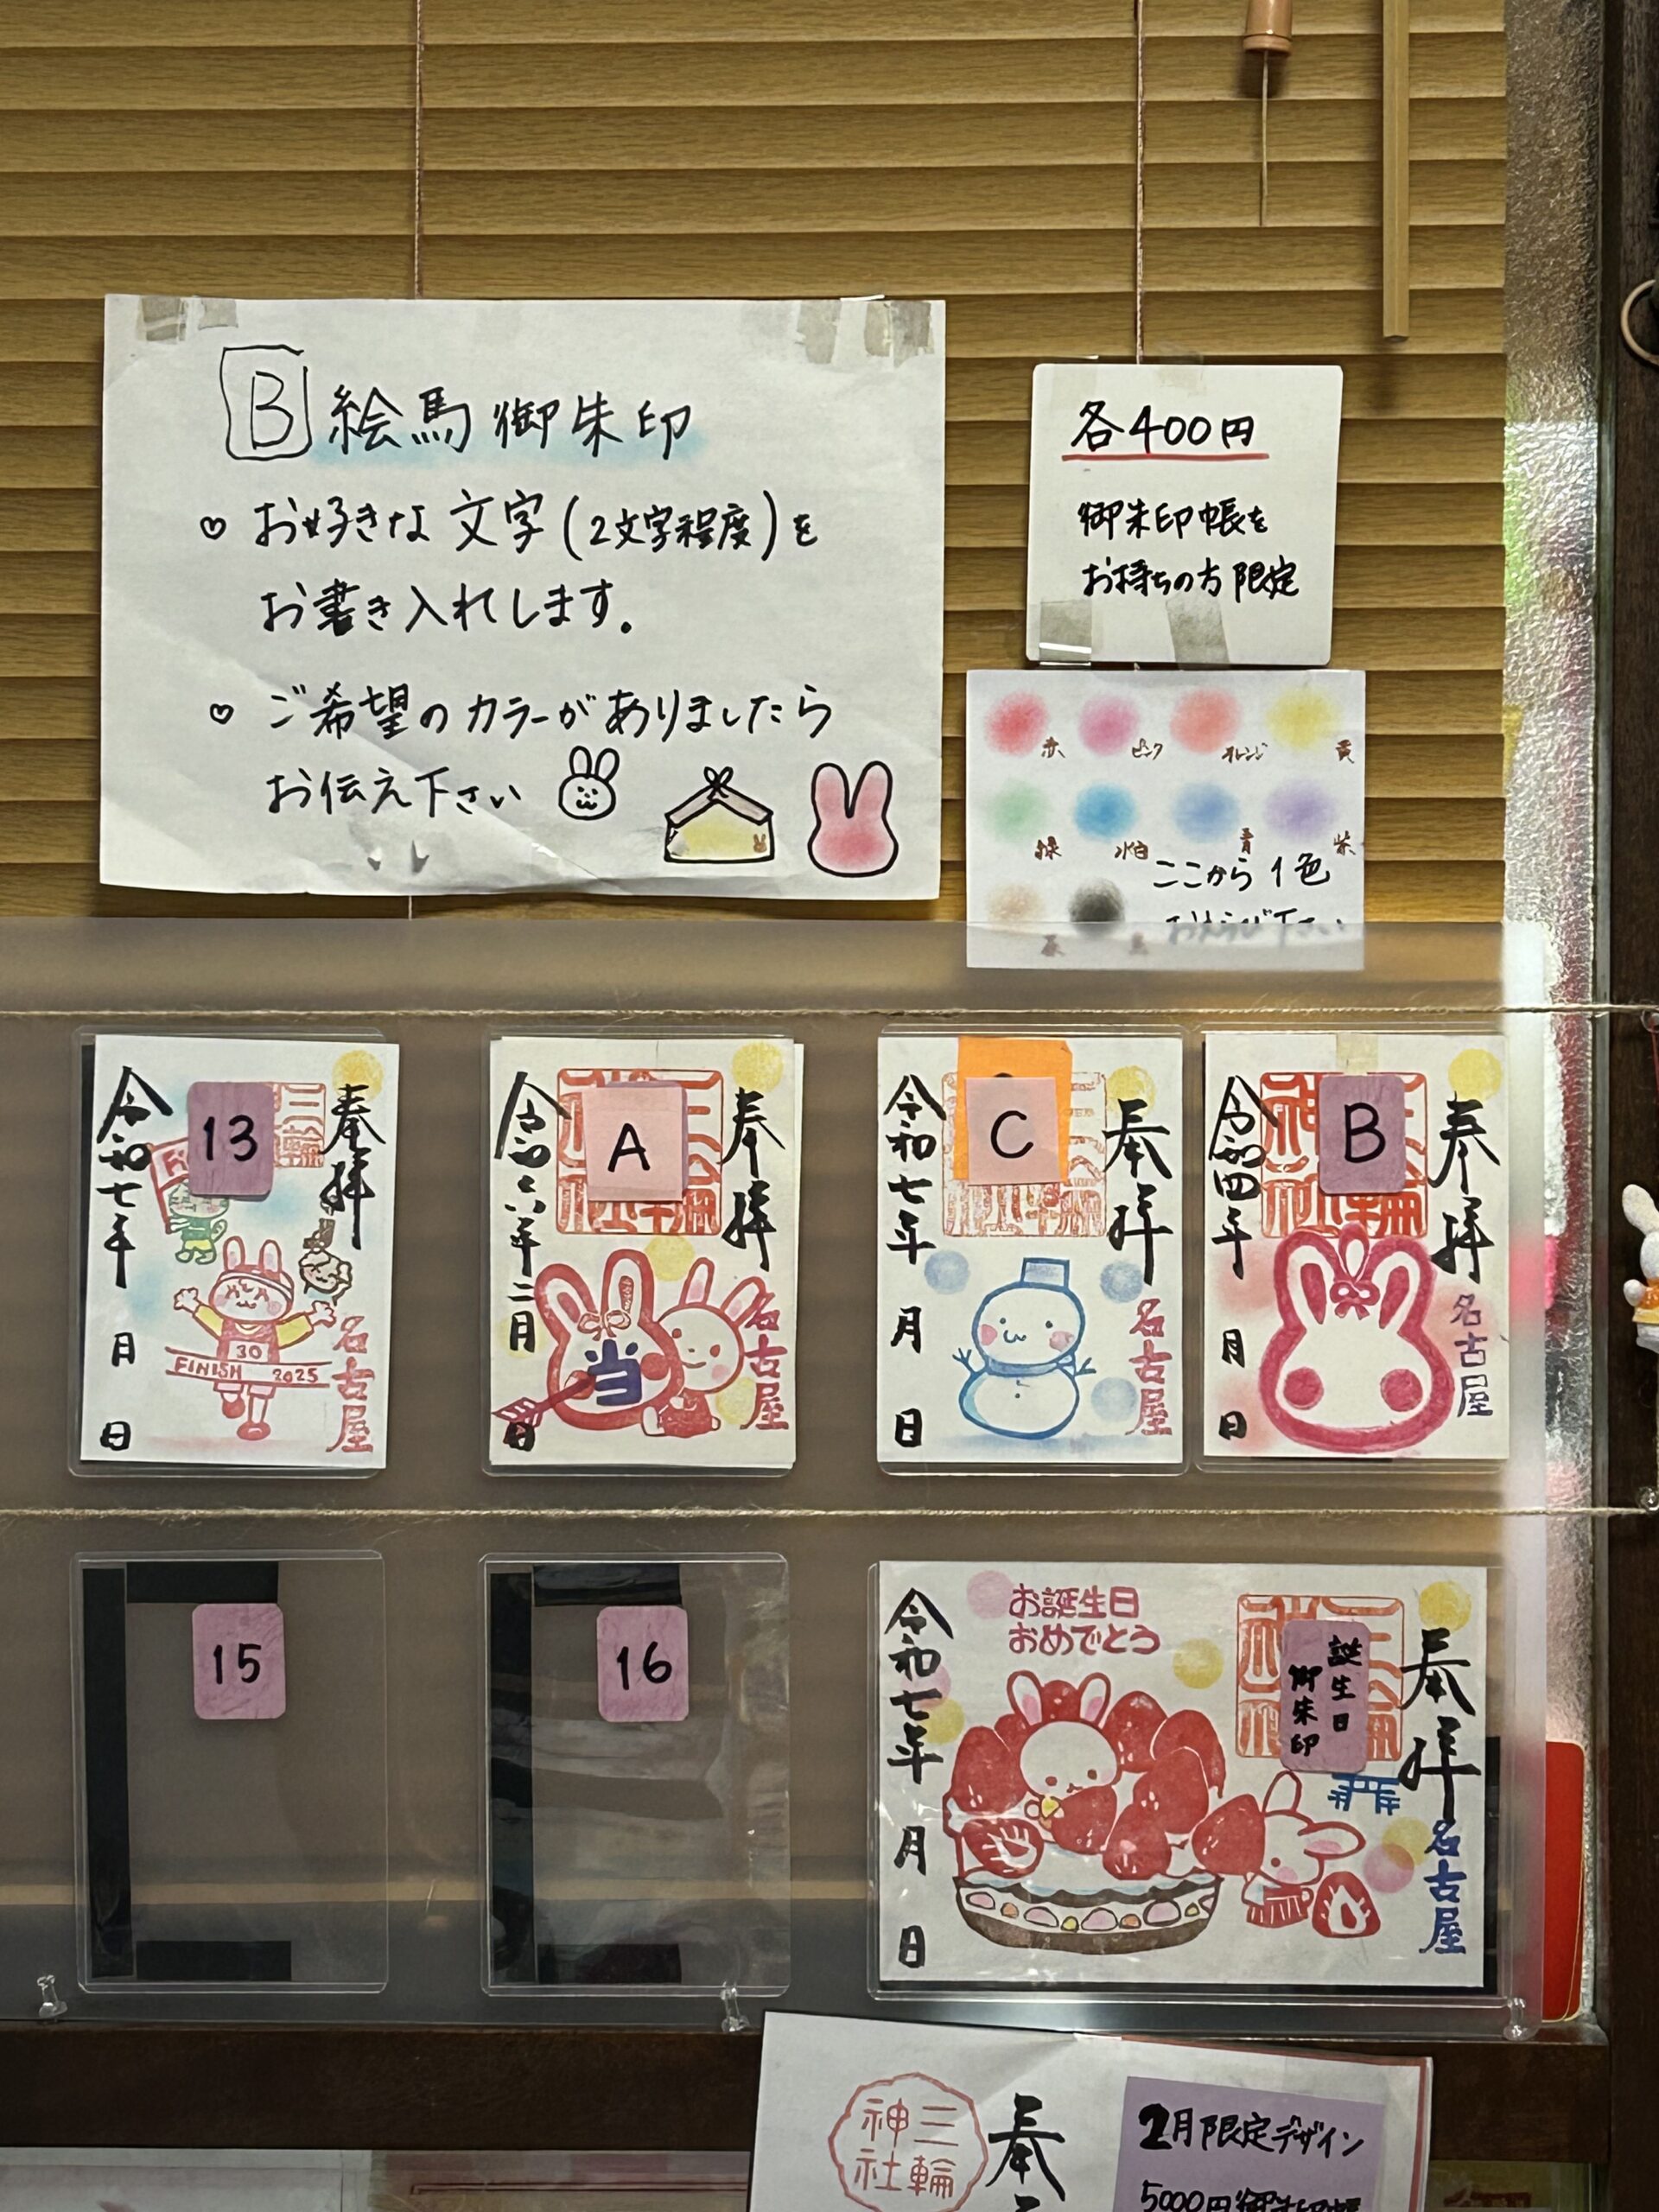 B 絵馬御朱印
♡ お好きな文字(2文字程度)を
お書き入れします。
♡ ご希望のカラーがありましたら
お伝え下さい
各400円
御朱印帳を
お持ちの方限定
赤 ピンク オレンジ 黄
緑 水色 青 紫
ここから1色
おえらび下さい
茶 黒
奉拝
13
令和七年
月
日
30
FINISH 2025
名古屋
奉拝
A
令和六年二月
日
当
名古屋
奉拝
C
令和七年
月
日
名古屋
奉拝
B
令和四年
月
日
名古屋
15
16
奉拝
誕生日
御朱印
お誕生日
おめでとう
令和七年
月
日
名古屋
三輪
神社
奉
2月限定デザイン
5000円御朱印帳